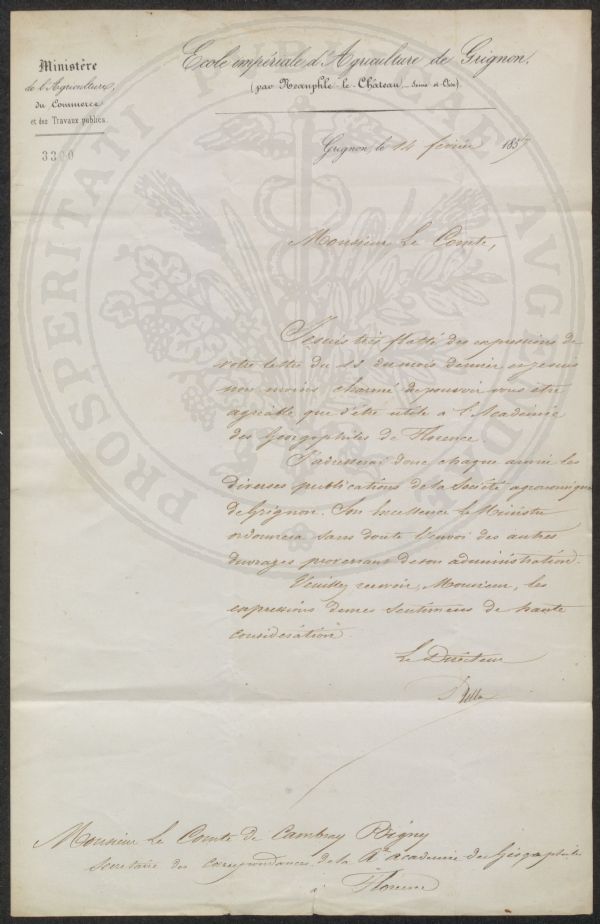 Ministère
de l'Agriculture,
du Commerce
et des Travaux publics.
3300
Ecole impériale d'Agriculture de Grignon,
(par Neauphle-le-Château, Seine-et-Oise).
Grignon, le 14 février 1857
Monsieur Le Comte,
Je suis très flatté des expressions de
votre lettre du 11 du mois dernier et je suis
non moins charmé de pouvoir vous être
agréable que d'être utile à l'Academie
des Georgophiles de Florence
J'adresserai donc, chaque année les
diverses publications de la Société agronomique
de Grignon. Son Excellence le Ministre
ordonnera sans doute l'envoi des autres
ouvrages provenant de son administration.
Veuillez recevoir, Monsieur, les
expressions de mes sentimens de haute
considération
Le Directeur
Bella
Monsieur Le Comte de Cambray Digny
Secretaire des correspondances de la Rle academie des Géogophiles
à Florence
PROSPERITATI PUBLICAE AUGENDAE